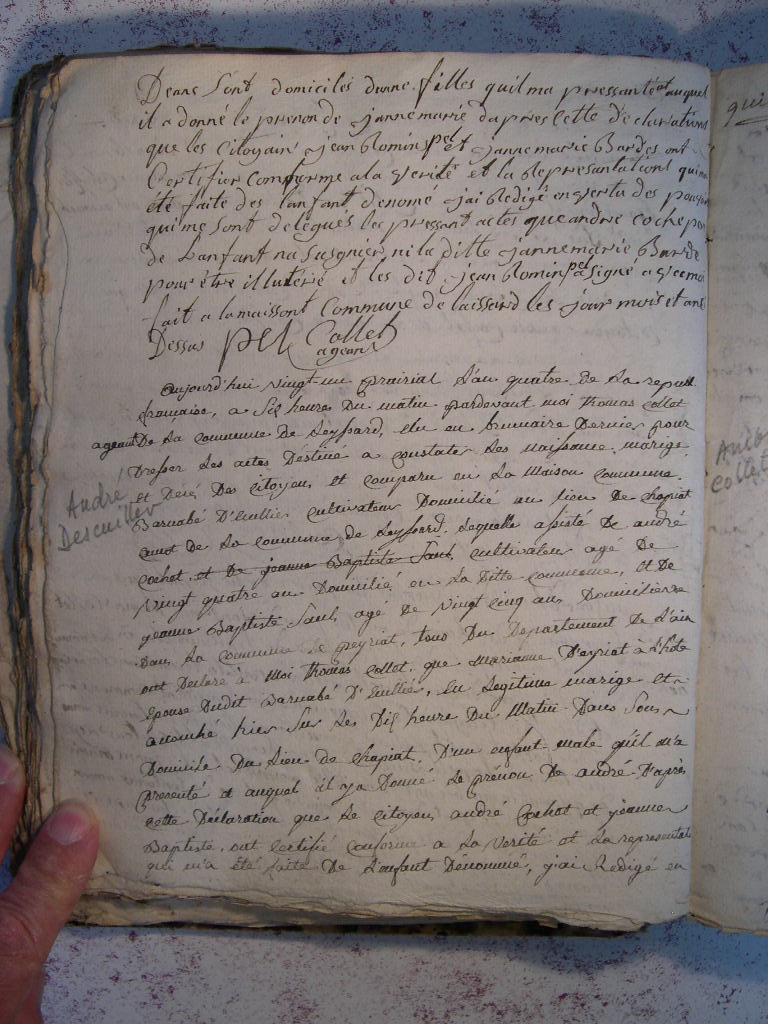 Deans Sont domiciles dunne filles quil ma pressanté et auquel
il a donné le prenon de jannemarie dapres Cette declarations
que les Citoyain jean Romin pel et jannemarie Bardes ont
Certifier Comforme a la verité et la Representations qui
été faite des lanfant denomé jai Redigé en vertu des
qui me sont delegués les pressant actes que andre coche
de Lanfant na Sasgnier ni la ditte jannemarie Barde
pour être illuterié et les dit jean Romin pel a signé avec moi
fait a la maissont Commune de laissard les jour mois et ans
Dessus pel Collet
agean
aujourd'hui vingt un prairial L'an quatre de La repub
francaise, a Six heures Du matin pardevant moi thomas Collot
ageant De La commune De Leyssard, elu en brumaire Dernier pour
Dresser Les actes Destiné a constater Les naissance, marige
et Décé Des Citoyens, et comparu en La Maison commune.
Barnabé D'Eculliés cultivateur Domicilié au lieu De chapiat
De La commune de Leyssard. Lequelle asisté De andré
cochot et De jeanne Baptiste Saul, cultivateur agé De
vingt quatre an Domicilié en La Ditte commune, et De
jeanne Baptiste Saul, agé De vingt cinq ans Domicilienne
Dans La commune De peyriat, tous Du Departement De L'ain
ont Declaré à Moi thomas Collot. que Marianne
Epouse Dudit Barnabé D'Eculliés, En Legitime marige et
acouché hier Sur Les Dix heure Du Matin Dans Son
Domicile Du Lieu De Chapiat, D'un enfant male qu'il m'a
presenté et auquel il y a Donné Le prénon De andré D'après
cette Déclaration que Le citoyens andré Cochot et jeanne
Baptiste, ont certifié conforme a La verité et La representati
qui m'a été faite De L'enfant Dénommé, j'ai Redigé en
André
Descuilles
qui
Collet